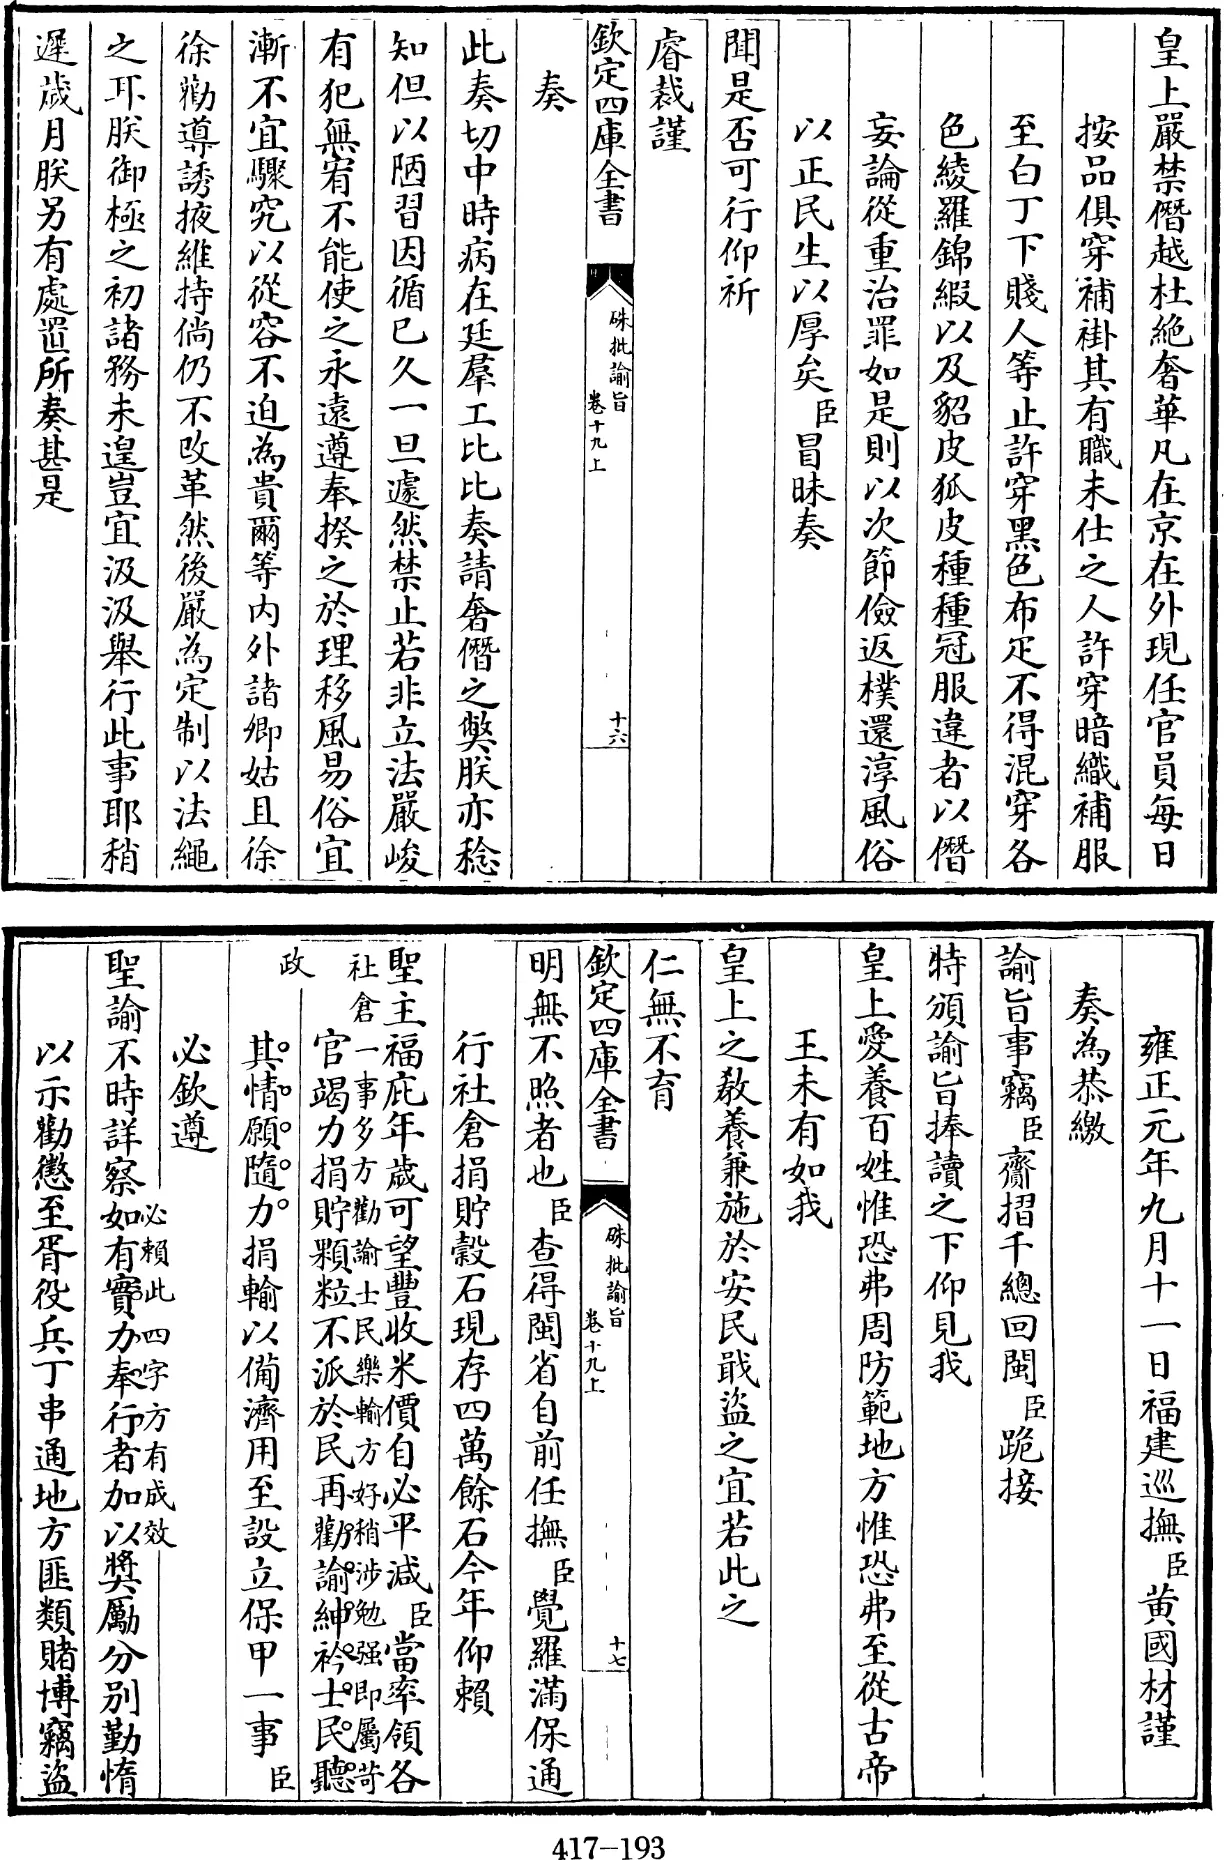 皇上嚴禁僭越杜絶奢華凡在京在外現任官員每日
按品俱穿補褂其有職未仕之人許穿暗織補服
至白丁下賤人等止許穿黑色布疋不得混穿各
色綾羅錦緞以及貂皮狐皮種種冠服違者以僭
妄論從重治罪如是則以次節儉返樸還淳風俗
以正民生以厚矣臣冒昧奏
聞是否可行仰祈
睿裁謹
欽定四庫全書 硃批諭旨 卷十九上 十六
奏
此奏切中時病在廷羣工比比奏請奢僭之弊朕亦稔
知但以陋習因循已久一旦遽然禁止若非立法嚴峻
有犯無宥不能使之永遠遵奉揆之於理移風易俗宜
漸不宜驟究以從容不迫為貴爾等内外諸卿姑且徐
徐勸導誘掖維持倘仍不改革然後嚴為定制以法繩
之耳朕御極之初諸務未遑豈宜汲汲舉行此事耶稍
遲歲月朕另有處置所奏甚是
雍正元年九月十一日福建巡撫臣黄國材謹
奏為恭繳
諭旨事竊臣齎摺千總回閩臣跪接
特頒諭旨捧讀之下仰見我
皇上愛養百姓惟恐弗周防範地方惟恐弗至從古帝
王未有如我
皇上之教養兼施於安民戢盜之宜若此之
仁無不育
欽定四庫全書 硃批諭旨 卷十九上 十七
明無不照者也臣查得閩省自前任撫臣覺羅滿保通
行社倉捐貯穀石現存四萬餘石今年仰賴
聖主福庇年歲可望豐收米價自必平減臣當率領各
社倉一事多方勸諭士民樂輸方好稍涉勉强即屬苛
官竭力捐貯顆粒不派於民再勸諭紳衿士民聽
政
其情願隨力捐輸以備濟用至設立保甲一事臣
必欽遵
必賴此四字方有成效
聖諭不時詳察如有實力奉行者加以獎勵分别勤惰
以示勸懲至胥役兵丁串通地方匪類賭博竊盜
417-193